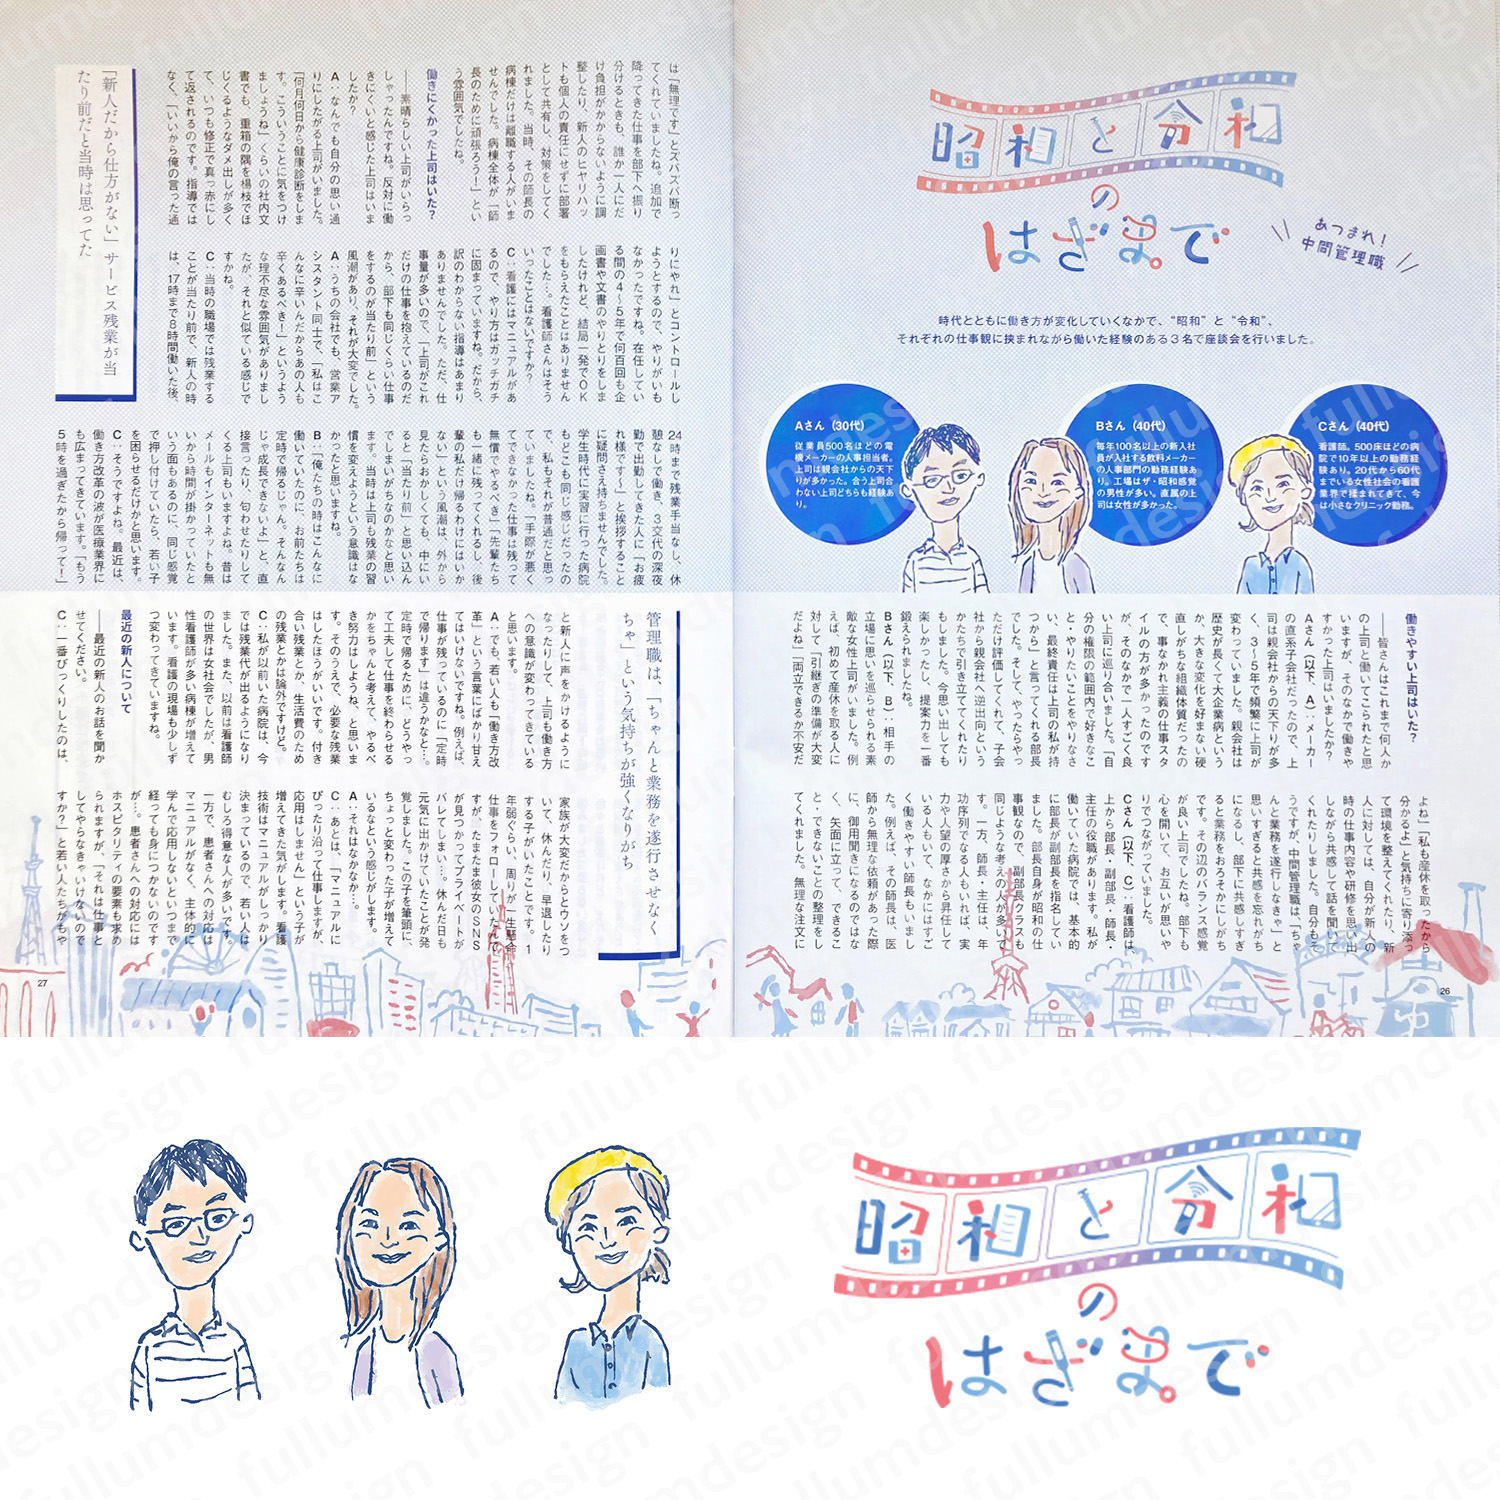 昭和と令和
の
はざまで
あつまれ！
中間管理職
時代とともに働き方が変化していくなかで、“昭和” と “令和”、
それぞれの仕事観に挟まれながら働いた経験のある３名で座談会を行いました。
Aさん（30代）
従業員500名ほどの電
機メーカーの人事担当者。
上司は親会社からの天下
りが多かった。合う上司合
わない上司どちらも経験あ
り。
Bさん（40代）
毎年100名以上の新入社
員が入社する飲料メーカー
の人事部門の勤務経験あ
り。工場はザ・昭和感覚
の男性が多い。直属の上
司は女性が多かった。
Cさん（40代）
看護師。500床ほどの病
院で10年以上の勤務経
験あり。20代から60代
までいる女性社会の看護
業界で揉まれてきて、今
は小さなクリニック勤務。
働きやすい上司はいた？
――皆さんはこれまで何人か
の上司と働いてこられたと思
いますが、そのなかで働きや
すかった上司はいましたか？
Aさん（以下、A）：メーカー
の直系子会社だったので、上
司は親会社からの天下りが多
く、３～５年で頻繁に上司が
変わっていました。親会社は
歴史が長くて大企業病という
か、大きな変化を好まない硬
直しがちな組織体質だったの
で、事なかれ主義の仕事スタ
イルの方が多かったのです
が、そのなかで一人すごく良
い上司に巡り合いました。「自
分の権限の範囲内で好きなこ
と・やりたいことをやりなさ
い、最終責任は上司の私が持
つから」と言ってくれる部長
でした。そして、やったらやっ
ただけ評価してくれて、子会
社から親会社へ逆出向という
かたちで引き立ててくれたり
もしました。今思い出しても
楽しかったし、提案力を一番
鍛えられましたね。
Bさん（以下、B）：相手の
立場に思いを巡らせられる素
敵な女性上司がいました。例
えば、初めて産休を取る人に
対して、「引継ぎの準備が大変
だよね」「両立できるか不安だ
よね」「私も産休を取ったから
分かるよ」と気持ちに寄り添っ
て環境を整えてくれたり、新
人に対しては、自分が新人の
時の仕事内容や研修を思い出
しながら共感して話を聞いて
くれたりしました。自分もそ
うですが、中間管理職は、「ちゃ
んと業務を遂行しなきゃ」と
思いすぎると共感を忘れがち
になるし、部下に共感しすぎ
ると業務をおろそかにしがち
です。その辺のバランス感覚
が良い上司でしたね。部下も
心を開いて、お互いが思いや
りでつながっていました。
Cさん（以下、C）：看護師は
上から部長・副部長・師長・
主任の役職があります。私が
働いていた病院では、基本的
に部長が副部長を指名してい
ました。部長自身が昭和の仕
事観なので、副部長クラスも
同じような考えの人が多いで
す。一方、師長・主任は、年
功序列でなる人もいれば、実
力や人望の厚さから昇任して
いる人もいて、なかにはすご
く働きやすい師長もいまし
た。例えば、その師長は、医
師から無理な依頼があった際
に、御用聞きになるのではな
く、矢面に立って、できるこ
と・できないことの整理をし
てくれました。無理な注文に
26
は「無理です」とズバズバ断っ
てくれていましたね。追加で
降ってきた仕事を部下へ振り
分けるときも、誰か一人にだ
け負担がかからないように調
整したり、新人のヒヤリハッ
トも個人の責任にせずに部署
として共有し、対策をしてく
れました。当時、その師長の
病棟だけは離職する人がいま
せんでした。病棟全体が「師
長のために頑張ろう！」とい
う雰囲気でしたね。
働きにくかった上司はいた？
――素晴らしい上司がいらっ
しゃったんですね。反対に働
きにくいと感じた上司はいま
したか？
A：なんでも自分の思い通
りにしたがる上司がいました。
「何月何日から健康診断をしま
す。こういうことに気をつけ
ましょうね」くらいの社内文
書でも、重箱の隅を楊枝でほ
じくるようなダメ出しが多く
て、いつも修正で真っ赤にし
て返されるのです。指導では
なく、「いいから俺の言った通
りにやれ」とコントロールし
ようとするので、やりがいも
なかったですね。在任してい
る間の４～５年で何百回も企
画書や文書のやりとりをしま
したけれど、結局一発でOK
をもらえたことはありません
でした…。看護師さんはそう
いったことはないですか？
C：看護にはマニュアルがあ
るので、やり方はガッチガチ
に固まっていますね。だから、
訳のわからない指導はあまり
ありませんでした。ただ、仕
事量が多いので、「上司がこれ
だけの仕事を抱えているのだ
から、部下も同じくらい仕事
をするのが当たり前」という
風潮があり、それが大変でした。
A：うちの会社でも、営業ア
シスタント同士で、「私はこ
んなに辛いんだからあの人も
辛くあるべき！」というよう
な理不尽な雰囲気がありまし
たが、それと似ている感じで
すかね。
C：当時の職場では残業する
ことが当たり前で、新人の時
は、17時まで８時間働いた後、
「新人だから仕方がない」サービス残業が当
たり前だと当時は思ってた
24時まで残業手当なし、休
憩なしで働き、３交代の深夜
勤で出勤してきた人に「お疲
れ様です～」と挨拶すること
に疑問さえ持ちませんでした。
学生時代に実習に行った病院
もどこも同じ感じだったの
で、私もそれが普通だと思っ
ていましたね。「手際が悪く
てできなかった仕事は残って
無償でやるべき」「先輩たち
も一緒に残ってくれるし、後
輩の私だけ帰るわけにはいか
ない」という風潮は、外から
見たらおかしくても、中にい
ると「当たり前」と思い込ん
でしまいがちなのかなと思い
ます。当時は上司も残業の習
慣を変えようという意識はな
かったと思いますね。
B：「俺たちの時はこんなに
働いていたのに、お前たちは
定時で帰るじゃん。そんなん
じゃ成長できないよ」と、直
接言ったり、匂わせたりして
くる上司もいますよね。昔は
メールもインターネットも無
いから時間が掛かっていたと
いう面もあるのに、同じ感覚
で押し付けていたら、若い子
を困らせるだけかと思います。
C：そうですよね。最近は、
働き方改革の波が医療業界に
も広まってきています。「もう
５時を過ぎたから帰って！」
管理職は、「ちゃんと業務を遂行させなく
ちゃ」という気持ちが強くなりがち
と新人に声をかけるように
なったりして、上司も働き方
への意識が変わってきている
と思います。
A：でも、若い人も「働き方改
革」という言葉にばかり甘え
てはいけないですね。例えば、
仕事が残っているのに「定時
で帰ります」は違うかなと…。
定時で帰るために、どうやっ
て工夫して仕事を終わらせる
かをちゃんと考えて、やるべ
き努力はしようね、と思いま
す。そのうえで、必要な残業
はしたほうがいいです。付き
合い残業とか、生活費のため
の残業とかは論外ですけど。
C：私が以前いた病院は、今
では残業代が出るようになり
ました。また、以前は看護師
の世界は女社会でしたが、男
性看護師が多い病棟が増えて
います。看護の現場も少しず
つ変わってきていますね。
最近の新人について
――最近の新人のお話を聞か
せてください。
C：一番びっくりしたのは、
家族が大変だからとウソをつ
いて、休んだり、早退したり
する子がいたことです。１
年弱ぐらい、周りが一生懸命
仕事をフォローしていたんで
すが、たまたま彼女のSNS
が見つかってプライベートが
バレてしまい…。休んだ日も
元気に出かけていたことが発
覚しました。この子を筆頭に、
ちょっと変わった子が増えて
いるなという感じがします。
A：それはなかなか…。
C：あとは、「マニュアルに
ぴったり沿って仕事しますが、
応用はしません」という子が
増えてきた気がします。看護
技術はマニュアルがしっかり
決まっているので、若い人は
むしろ得意な人が多いです。
一方で、患者さんへの対応は
マニュアルがなく、主体的に
学んで応用しないといつまで
経っても身につかないのです
が…。患者さんへの対応には
ホスピタリティの要素も求め
られますが、「それは仕事と
してやらなきゃいけないので
すか？」と若い人たちがもや
27
昭和と令和
の
はざまで
fullumdesign